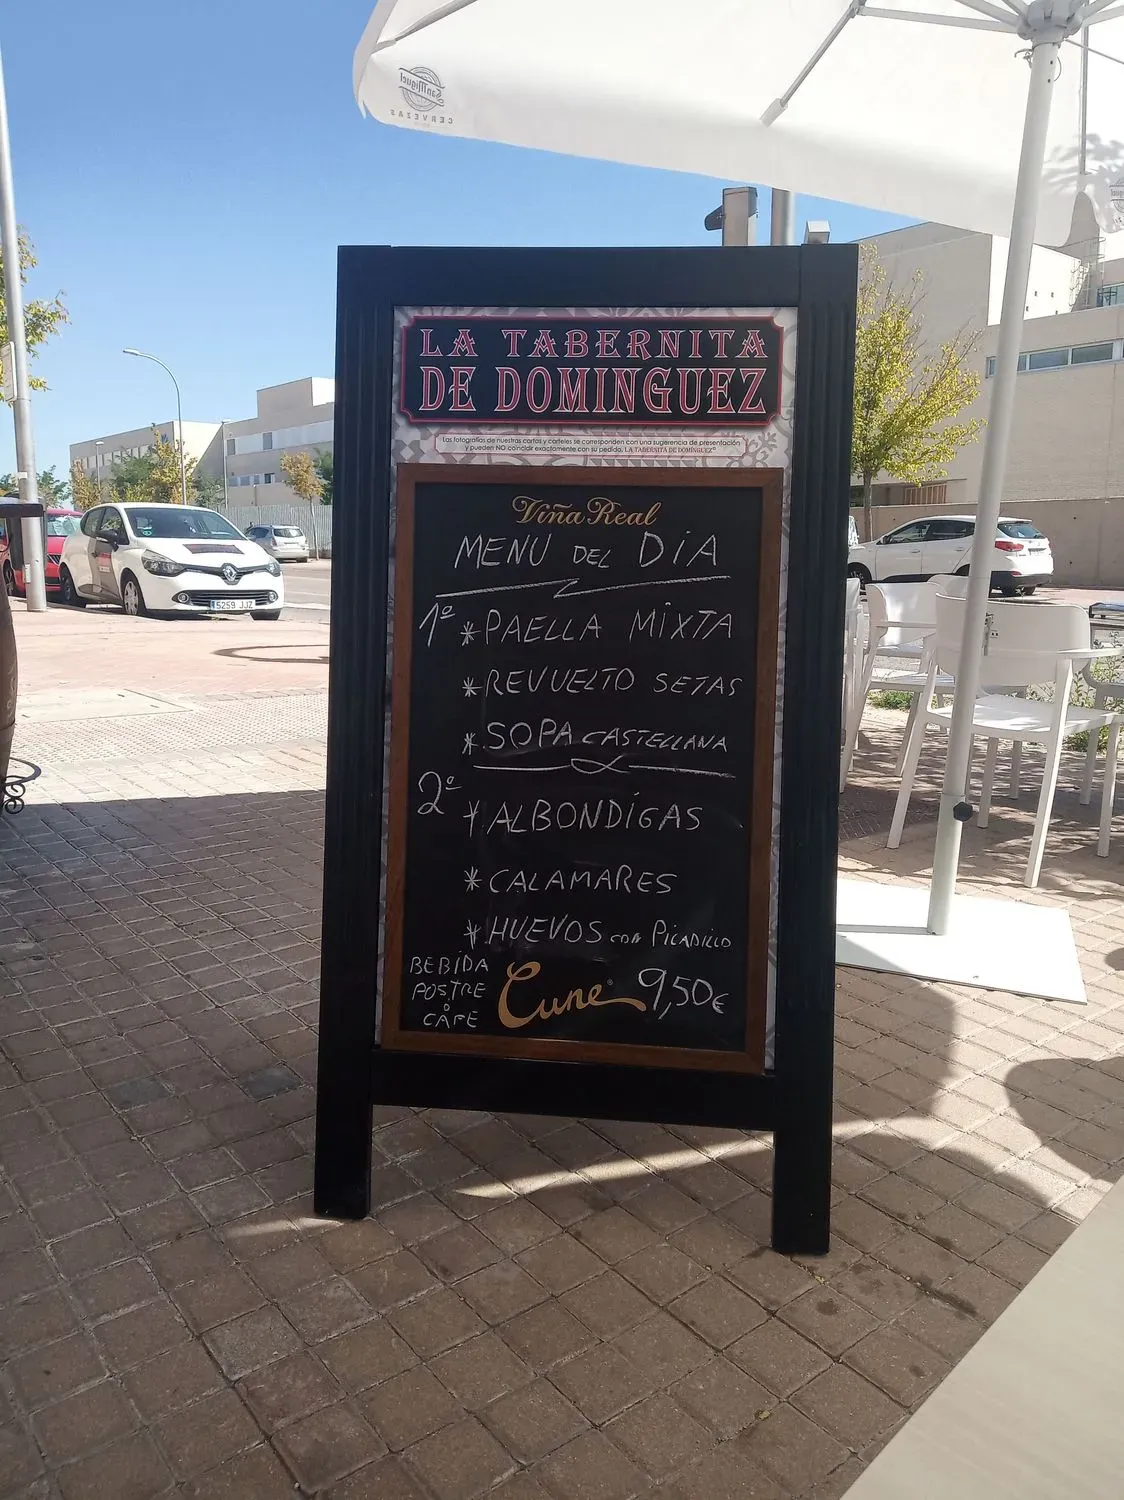 SanMiguel
CERVEZAS
LA TABERNITA
DE DOMINGUEZ
Las fotografías de nuestras cartas y carteles se corresponden con una sugerencia de presentación
y pueden NO coincidir exactamente con su pedido. LA TABERNITA DE DOMÍNGUEZ®
Viña Real
MENU DEL DíA
1º * PAELLA MiXTA
* REVUELTO SETAS
* SOPA CASTELLANA
2º * ALBONDÍGAS
* CALAMARES
* HUEVOS con PiCADiLLO
BEBÍDA
POSTRE
o
CAFE
Cune®
9,50€
5259 JJZ